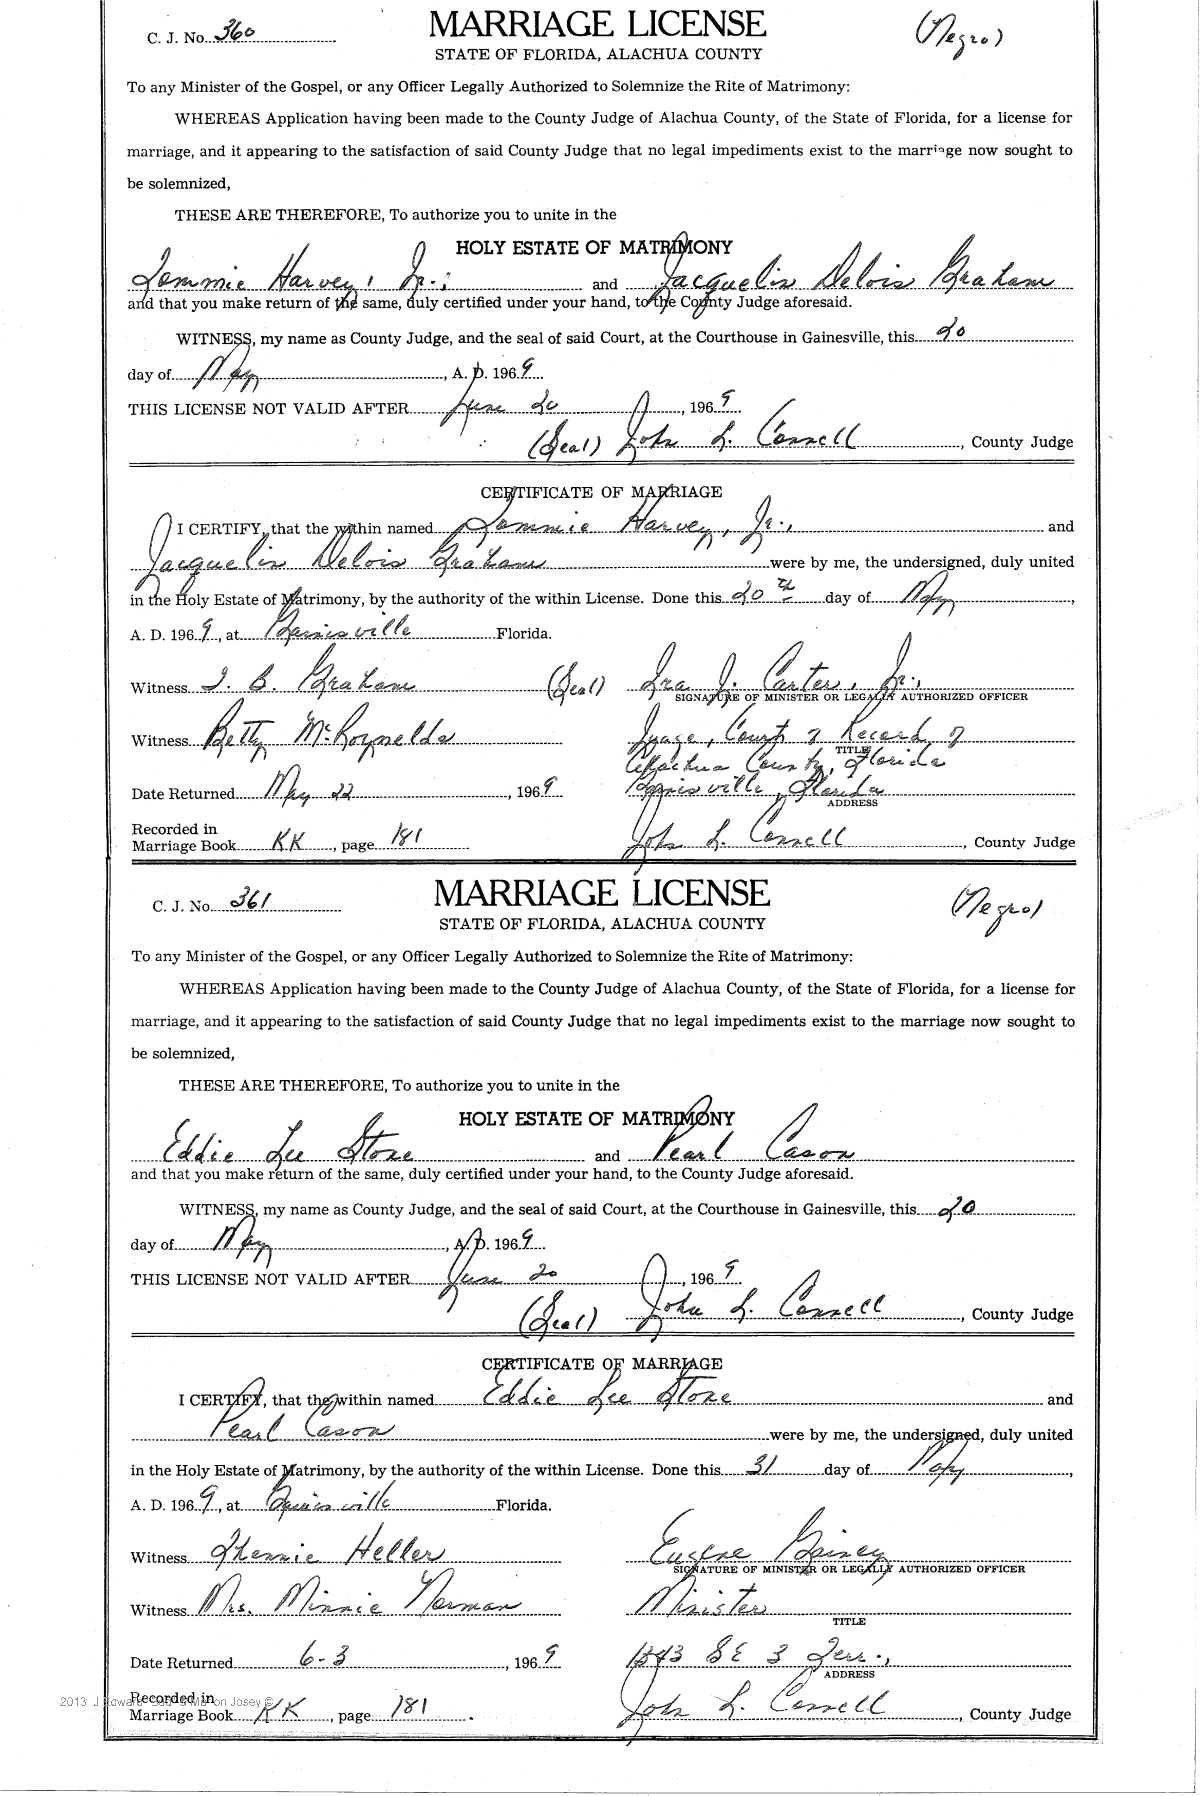 C. J. No. 360
MARRIAGE LICENSE
(Negro)
STATE OF FLORIDA, ALACHUA COUNTY
To any Minister of the Gospel, or any Officer Legally Authorized to Solemnize the Rite of Matrimony:
WHEREAS Application having been made to the County Judge of Alachua County, of the State of Florida, for a license for
marriage, and it appearing to the satisfaction of said County Judge that no legal impediments exist to the marriage now sought to
be solemnized,
THESE ARE THEREFORE, To authorize you to unite in the
HOLY ESTATE OF MATRIMONY
Lemmie Harvey, Jr., and Jacquelin Delois Graham
and that you make return of the same, duly certified under your hand, to the County Judge aforesaid.
WITNESS, my name as County Judge, and the seal of said Court, at the Courthouse in Gainesville, this 20
day of May, A. D. 1969
THIS LICENSE NOT VALID AFTER June 20, 1969
(Seal) John L. Connell, County Judge
CERTIFICATE OF MARRIAGE
I CERTIFY, that the within named Lemmie Harvey, Jr., and
Jacquelin Delois Graham were by me, the undersigned, duly united
in the Holy Estate of Matrimony, by the authority of the within License. Done this 20th day of May,
A. D. 1969, at Gainesville Florida.
Witness I. B. Graham (Seal) Ira J. Carter, Jr.,
SIGNATURE OF MINISTER OR LEGALLY AUTHORIZED OFFICER
Witness Betty McRoynelds Judge, Court of Record of
TITLE
Alachua County, Florida
Date Returned May 22, 1969 Gainesville, Florida
ADDRESS
Recorded in
Marriage Book KK, page 181 John L. Connell, County Judge
C. J. No. 361
MARRIAGE LICENSE
(Negro)
STATE OF FLORIDA, ALACHUA COUNTY
To any Minister of the Gospel, or any Officer Legally Authorized to Solemnize the Rite of Matrimony:
WHEREAS Application having been made to the County Judge of Alachua County, of the State of Florida, for a license for
marriage, and it appearing to the satisfaction of said County Judge that no legal impediments exist to the marriage now sought to
be solemnized,
THESE ARE THEREFORE, To authorize you to unite in the
HOLY ESTATE OF MATRIMONY
Eddie Lee Stone and Pearl Cason
and that you make return of the same, duly certified under your hand, to the County Judge aforesaid.
WITNESS, my name as County Judge, and the seal of said Court, at the Courthouse in Gainesville, this 20
day of May, A. D. 1969
THIS LICENSE NOT VALID AFTER June 20, 1969
(Seal) John L. Connell, County Judge
CERTIFICATE OF MARRIAGE
I CERTIFY, that the within named Eddie Lee Stone and
Pearl Cason were by me, the undersigned, duly united
in the Holy Estate of Matrimony, by the authority of the within License. Done this 31 day of May,
A. D. 1969, at Gainesville Florida.
Witness Heller Eugene Gainey
SIGNATURE OF MINISTER OR LEGALLY AUTHORIZED OFFICER
Witness Mrs. Minnie Norman Minister
TITLE
Date Returned 6-3, 1969 1343 SE 3 Terr.,
ADDRESS
Recorded in
Marriage Book KK, page 181. John L. Connell, County Judge
2013 Josey ©